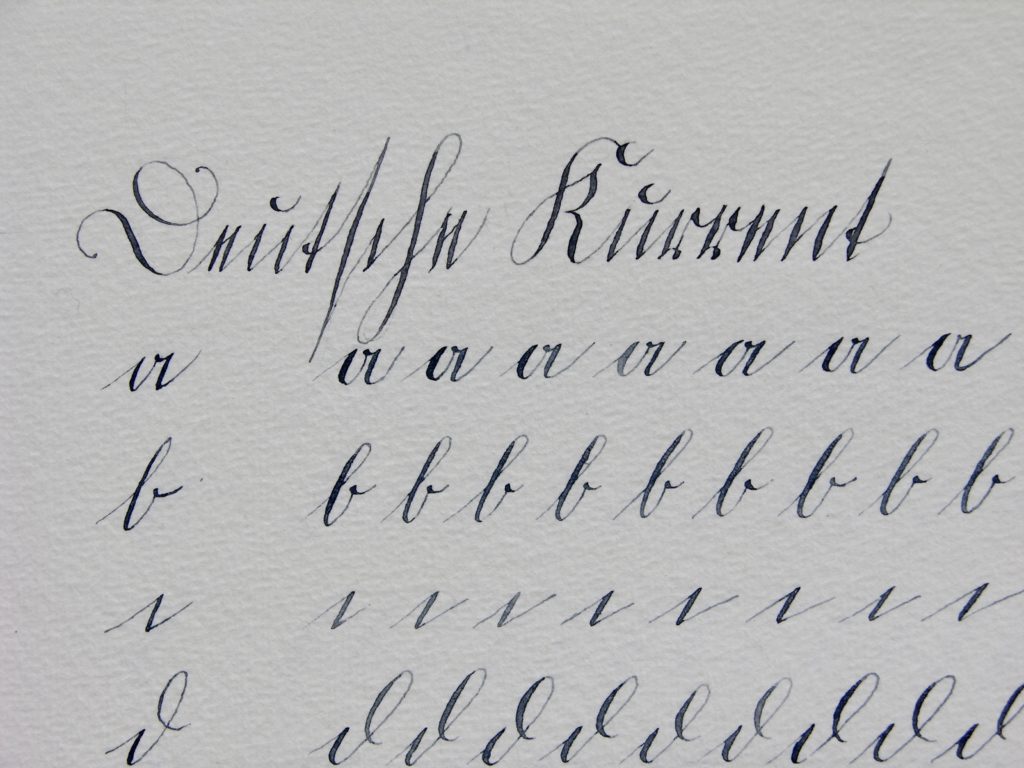 Deutsche Kurrent
a a a a a a a a
b b b b b b b b b b
c c c c c c c c c
d d d d d d d d d d